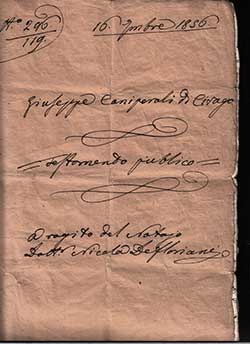 N.º 296
119.
16. 9mbre 1856
Giuseppe Caniparoli di Civago
testamento publico
A rogito del Notajo
Dott. Nicola DeFloriani